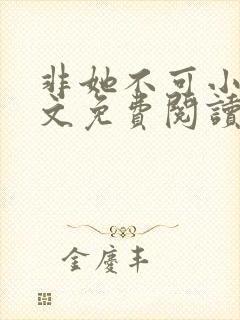 非她不可小
文免費閱讀
金慶丰